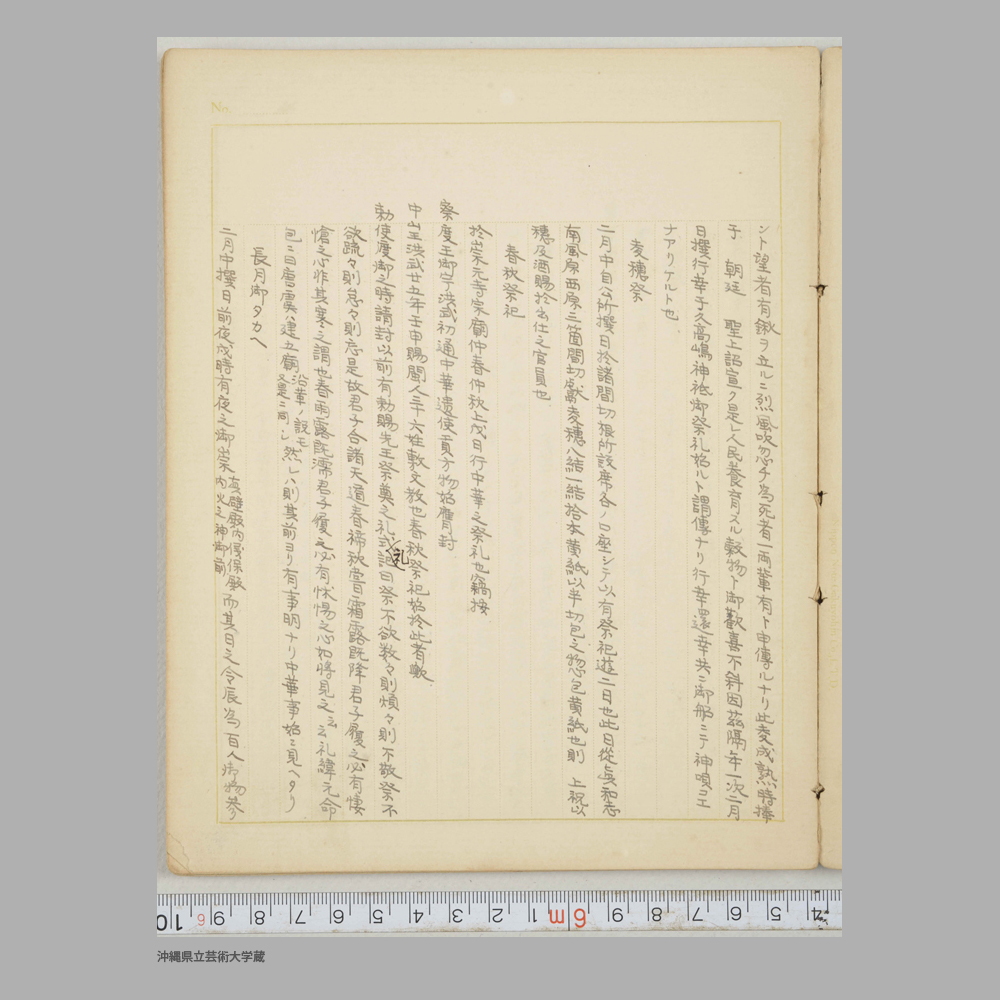 ント望者有鍬ヲ立ルニ烈風吹忽チ為死者一両輩有ト申傳ルナリ此麦成熟時捧
子 朝廷 聖上詔宣ク是レ人民養育スル穀物ト御歡喜不斜因茲隔年一次二月
日撰行幸于久高嶋神祇御祭礼始ルト謂傳ナリ行幸還幸共ニ御船ニテ神唄コエ
ナアリケルト也
麦穗祭
二月中自公所撰日於諸間切據所設席各ノロ座シテ以有祭祀遊二日也此日從真和志
南風原西原三箇間切獻麦穗八結一結拾本黄紙以半切包之惣包黄紙也則 上祝以
穗及酒賜於出仕之官員也
春秋祭祀
於崇元寺宗廟仲春仲秋上戊日行中華之祭礼也竊按
察度王御宇洪武初通中華遣使貢方物始膺封
中山王洪武廿五年壬申賜閩人三十六姓敷文教也春秋祭祀始於此者歟
勅使渡御之時請封以前有勅賜先王祭奠之礼式記曰祭不欲数々則煩々則不敬祭不
礼
欲疏々則怠々則忘是故君子合諸天道春禘秋嘗霜露既降君子履之必有悽
愴之心非其寒之謂也春雨露既濡君子履之必有怵惕之心如將見之云云礼緯元命
包ニ曰唐虞ハ建五廟沿革ノ説モ又是ニ同シ然レハ則其前ヨリ有事明ナリ中華事始ニ見ヘタリ
長月御タカヘ
二月中撰日前夜戌時有夜之御崇真壁殿内儀保殿内火之神御前而其日之令辰為百人御物参
No.
10 6 9 8 7 6 5 4 3 2 1 6m 9 8 7 6 5 4
沖縄県立芸術大学蔵